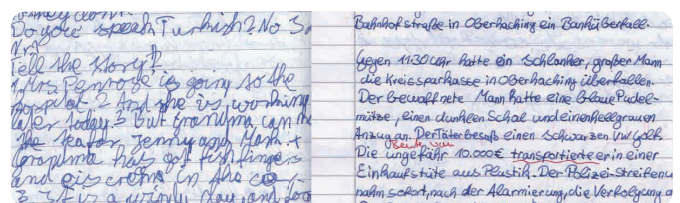 Do you speak Turkish? No 3.
Tell the story?
1. Mrs Penrose is going so the
hospital 2 And she is working
later today 3 But Grandma can
the Jenny and Mark 4
Grandma has got fishfingers
and eis crems in the
3 It is a windy day and
Bahnhofstraße in Oberhaching ein Banküberfall.
Gegen 11:30 Uhr hatte ein schlanker, großer Mann
die Kreissparkasse in Oberhaching überfallen.
Der bewaffnete Mann hatte eine blaue Pudel-
mütze, einen dunklen Schal und einen hellgrauen
Anzug an. Der Täter besaß einen schwarzen VW Golf.
Beute von
Die ungefähr 10.000€ transportierte er in einer
Einkaufstüte aus Plastik. Der Polizei-Streifenw
nahm sofort, nach der Alarmierung, die Verfolgung a